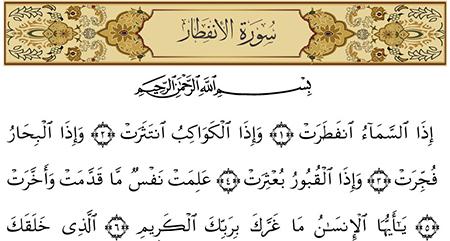 سُورَةُ الانفِطَارِ
بِسْمِ اللَّهِ الرَّحْمَٰنِ الرَّحِيمِ
إِذَا السَّمَاءُ انفَطَرَتْ ﴿١﴾ وَإِذَا الْكَوَاكِبُ انتَثَرَتْ ﴿٢﴾ وَإِذَا الْبِحَارُ
فُجِّرَتْ ﴿٣﴾ وَإِذَا الْقُبُورُ بُعْثِرَتْ ﴿٤﴾ عَلِمَتْ نَفْسٌ مَّا قَدَّمَتْ وَأَخَّرَتْ
﴿٥﴾ يَٰأَيُّهَا الْإِنسَٰنُ مَا غَرَّكَ بِرَبِّكَ الْكَرِيمِ ﴿٦﴾ الَّذِى خَلَقَكَ